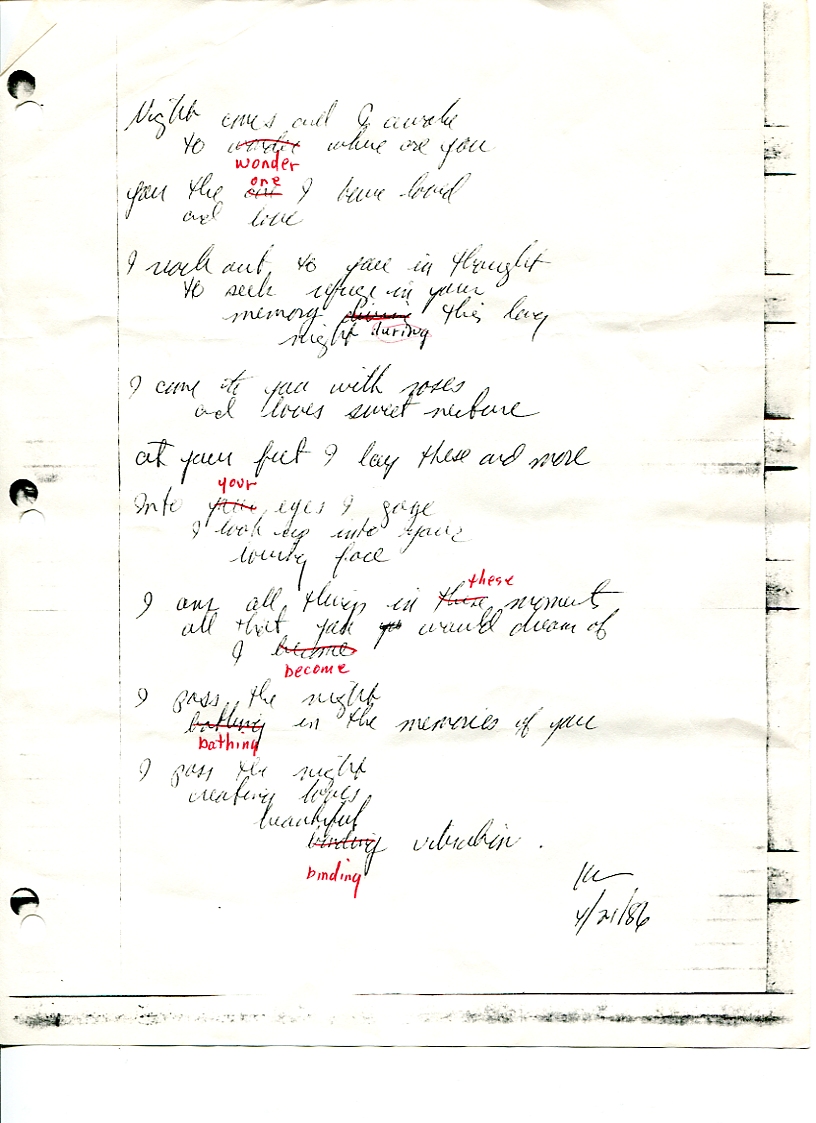 Night comes and I awake
to wonder where are you
wonder
one
you the one I have loved
and love
I reach out to you in thought
to seek refuge in your
memory during this long
night during
I come to you with roses
and loves sweet nurture
at your feet I lay these and more
your
Into your eyes I gaze
I look up into your
loving face
these
I am all things in these moments
all that you yo would dream of
I become
become
I pass the night
bathing in the memories of you
bathing
I pass the night
creating loves
beautiful
binding vibration.
binding
4/21/86